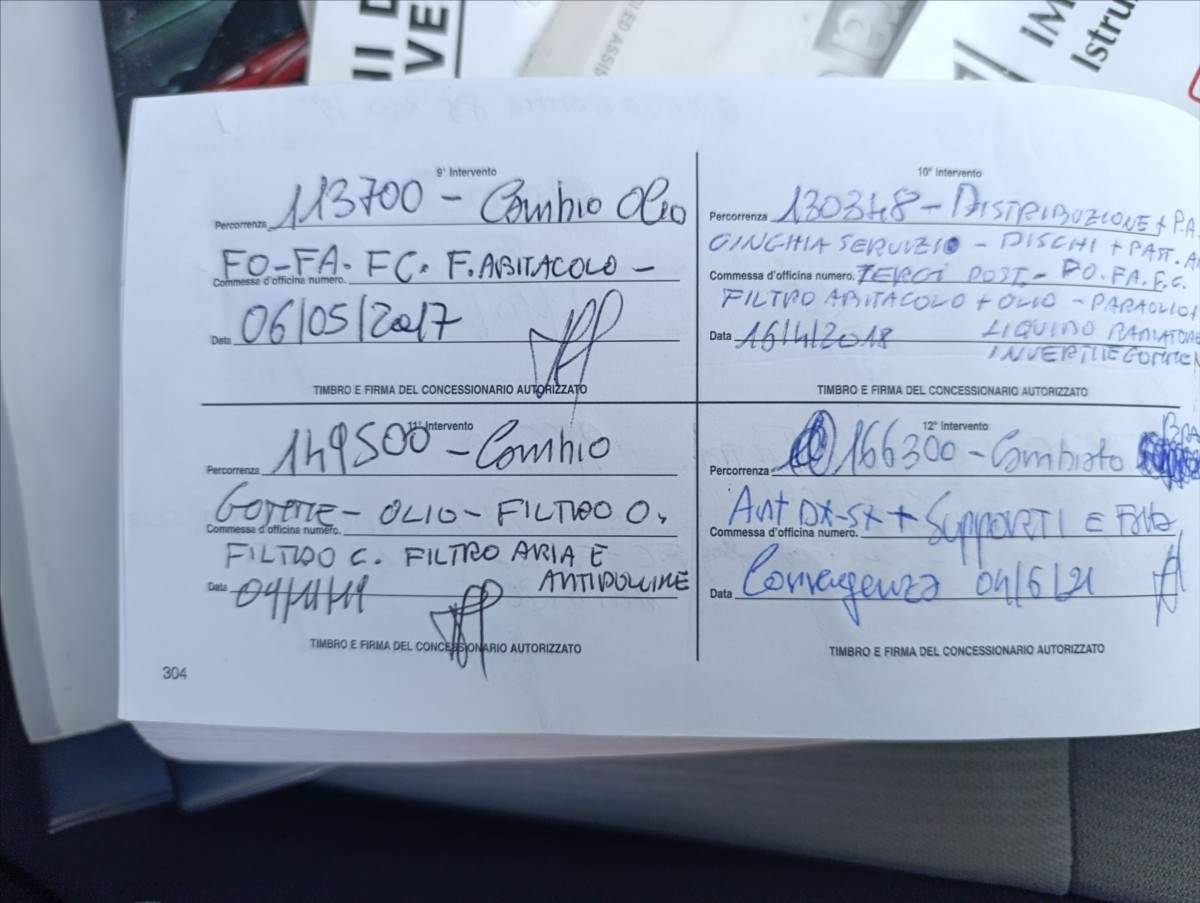 HI D
VE
CI ED ASSIS
iM
Istru
9° Intervento
Percorrenza 113700 - Cambio Olio
FO-FA. FC. F. ABITACOLO -
Commessa d'officina numero.
Data 06/05/2017
TIMBRO E FIRMA DEL CONCESSIONARIO AUTORIZZATO
10° Intervento
Percorrenza 130348 - DISTRIBUZIONE + P.A
CINGHIA SERVIZIO - DISCHI + PATT. A
Commessa d'officina numero. TERGI POST. - FO. FA. F.C.
FILTRO ABITACOLO + OLIO - PARAOLIO
Data 16/4/2018 LIQUIDO RADIATORE
INVERTITE GOMME
TIMBRO E FIRMA DEL CONCESSIONARIO AUTORIZZATO
11° Intervento
Percorrenza 149500 - Cambio
GOMME - OLIO - FILTRO O.
Commessa d'officina numero.
FILTRO C. FILTRO ARIA E
Data 04/11/19 ANTIPOLLINE
TIMBRO E FIRMA DEL CONCESSIONARIO AUTORIZZATO
12° Intervento
BRA
Percorrenza 166300 - Cambiato
Ant DX-SX + SUPPORTI E
Commessa d'officina numero.
Data Convergenza 04/6/21
TIMBRO E FIRMA DEL CONCESSIONARIO AUTORIZZATO
304